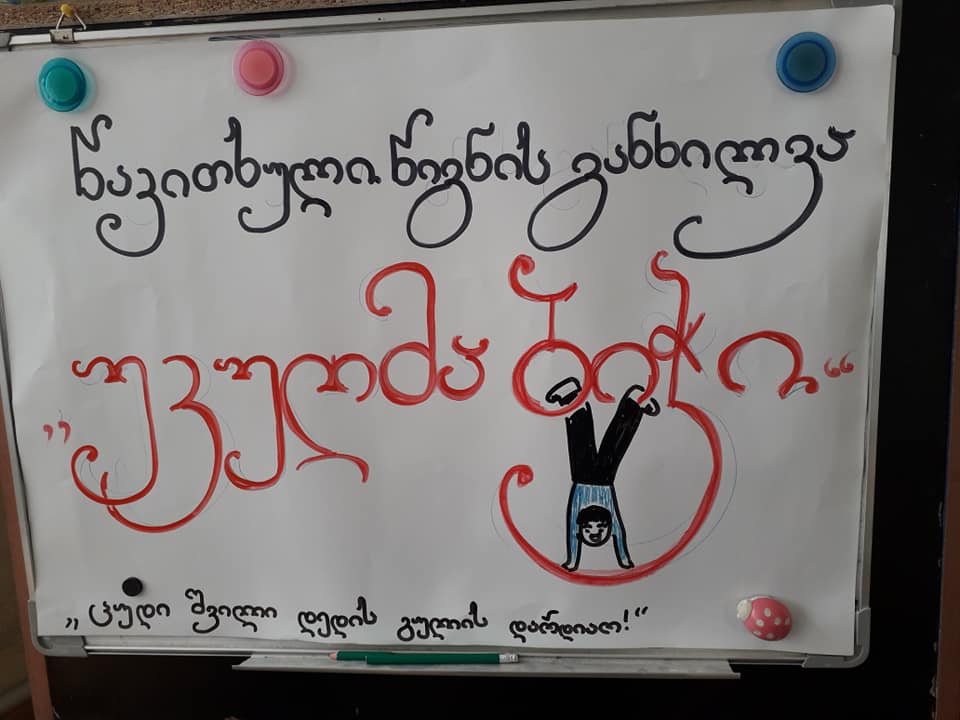 წაკითხული წიგნის განხილვა
„უკუღმა ბიჭი“
„ცუდი შვილი დედის გულის დარდიაო!“